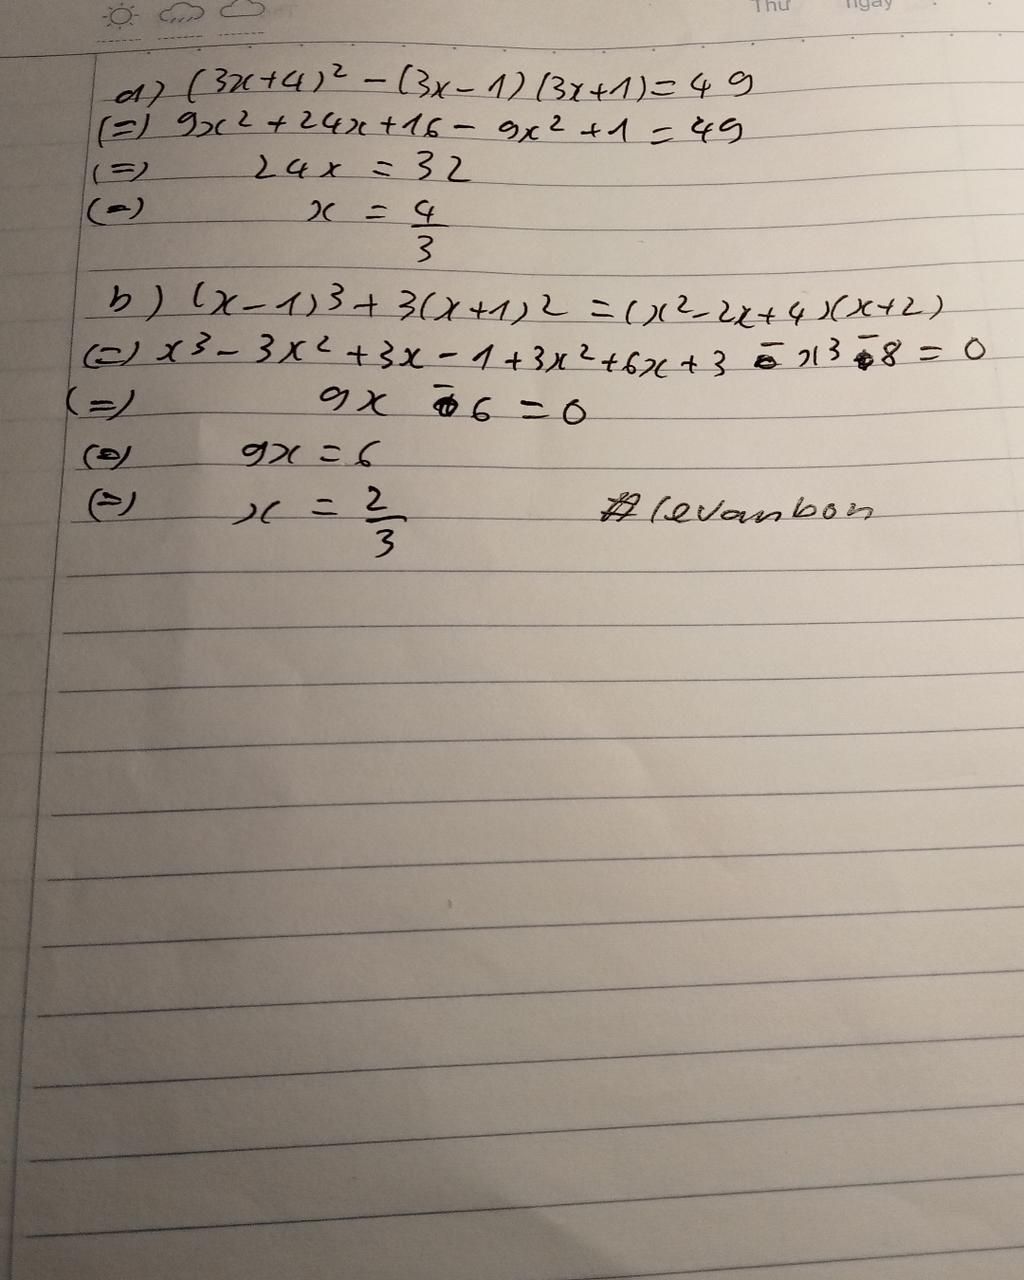 Thứ ngày
a) (3x+4)² - (3x-1)(3x+1) = 49
(=) 9x² + 24x + 16 - 9x² + 1 = 49
(=) 24x = 32
(=) x = 4/3
b) (x-1)3 + 3(x+1)2 = (x²-2x+4)(x+2)
(=) x³ - 3x² + 3x - 1 + 3x² + 6x + 3 - x³ - 8 = 0
(=) 9x - 6 = 0
(=) 9x = 6
(=) x = 2/3 #levanbon